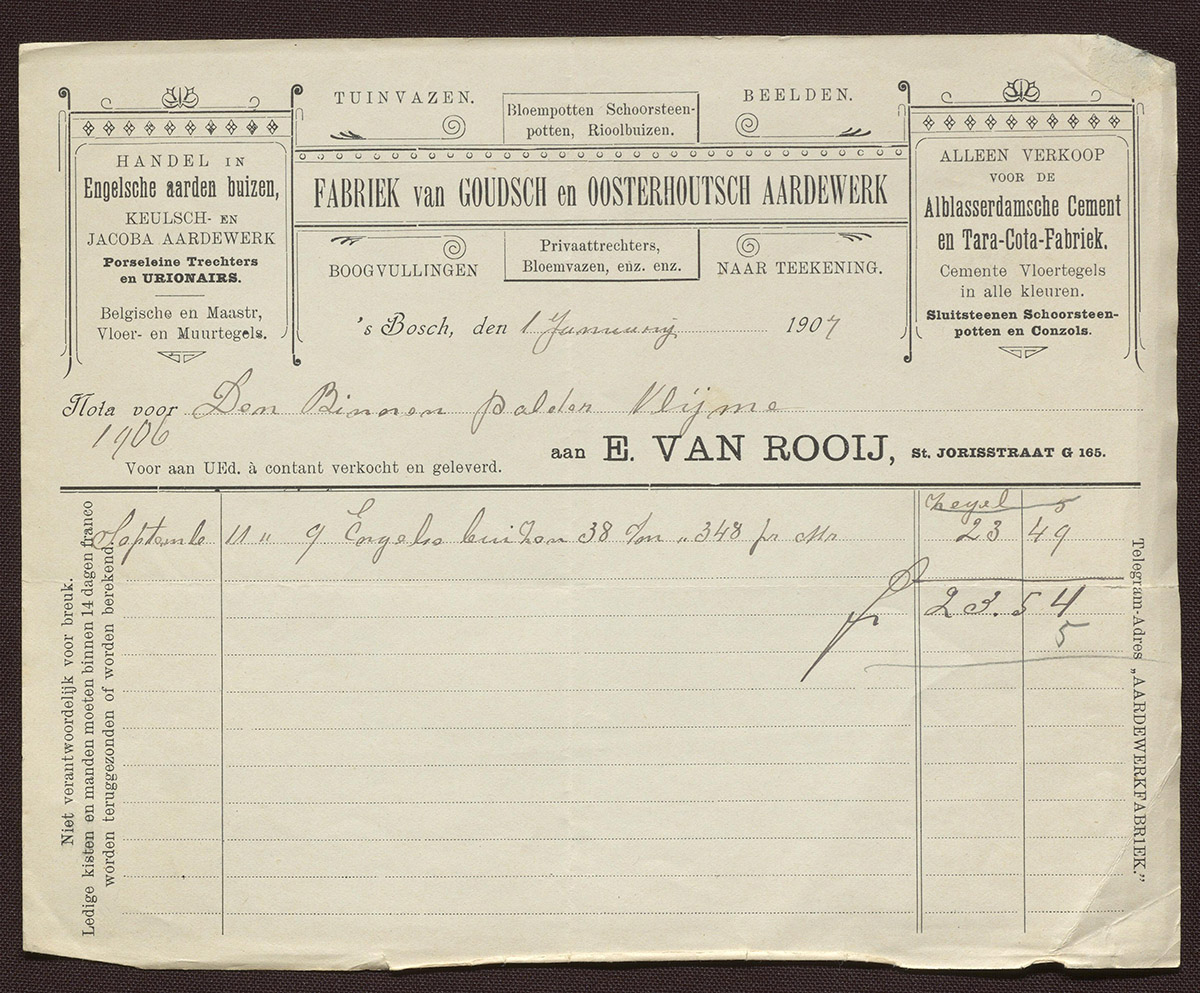 TUINVAZEN.
Bloempotten Schoorsteen-
potten, Rioolbuizen.
BEELDEN.
HANDEL IN
Engelsche aarden buizen,
KEULSCH- EN
JACOBA AARDEWERK
Porseleine Trechters
en URIONAIRS.
Belgische en Maastr,
Vloer- en Muurtegels.
FABRIEK van GOUDSCH en OOSTERHOUTSCH AARDEWERK
BOOGVULLINGEN
Privaattrechters,
Bloemvazen, enz. enz.
NAAR TEEKENING.
ALLEEN VERKOOP
VOOR DE
Alblasserdamsche Cement
en Tara-Cota-Fabriek.
Cemente Vloertegels
in alle kleuren.
Sluitsteenen Schoorsteen-
potten en Conzols.
's Bosch, den 1 Januarij 1907
Nota voor Den Binnen polder Vlijme
1906
aan E. VAN ROOIJ, St. JORISSTRAAT G 165.
Voor aan UEd. à contant verkocht en geleverd.
zegel 5
Septembe 11 " 9 Engels buizen 38 " 348 pr Mr 23 49
f 23.54
5
Niet verantwoordelijk voor breuk.
Ledige kisten en manden moeten binnen 14 dagen franco
worden teruggezonden of worden berekend.
Telegram-Adres „AARDEWERKFABRIEK."